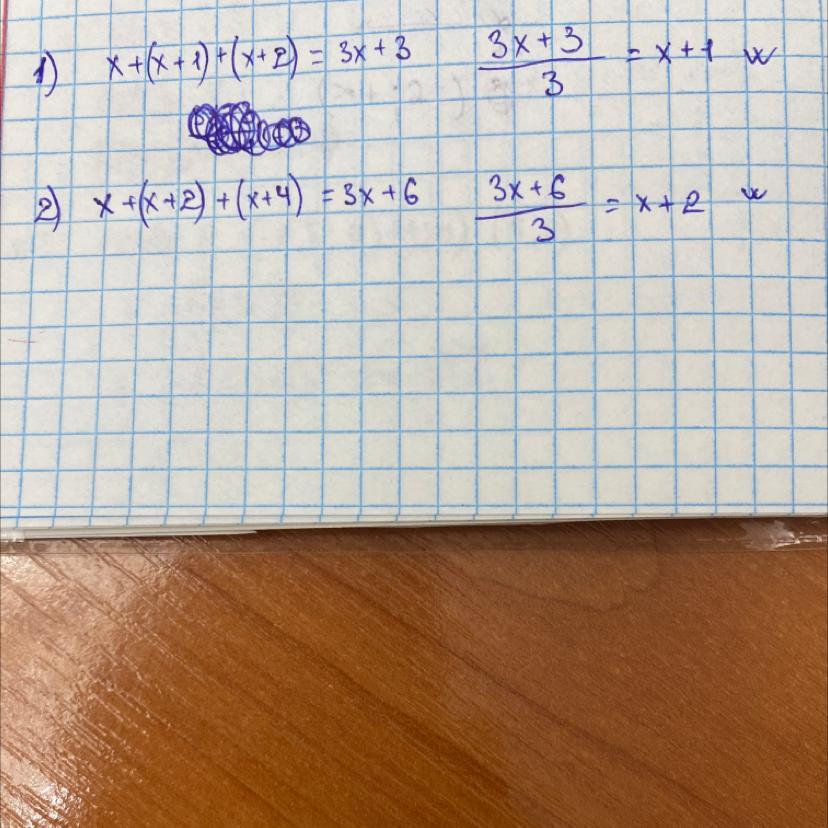 1) x+(x+1)+(x+2) = 3x+3 (3x+3)/3 = x+1
2) x+(x+2)+(x+4) = 3x+6 (3x+6)/3 = x+2